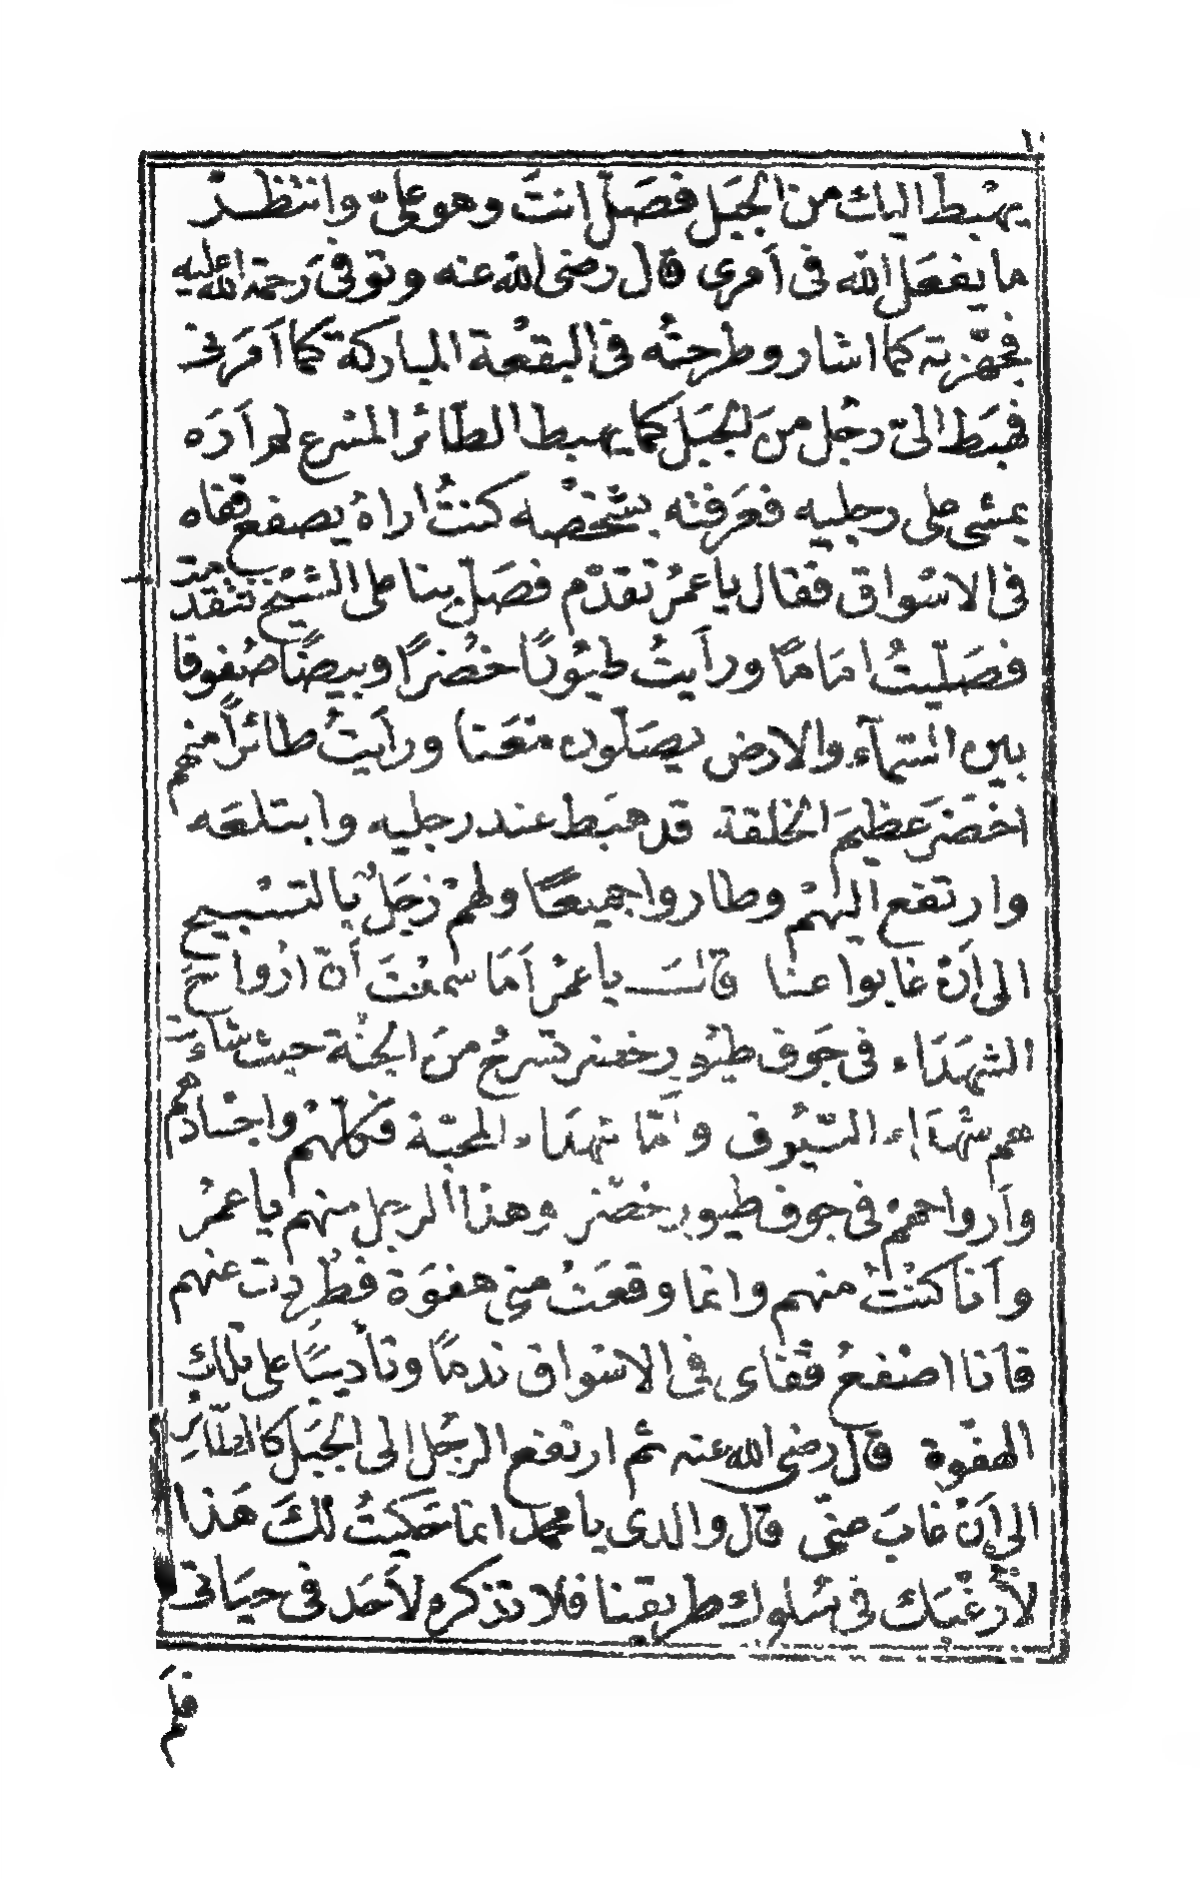 يهبط اليك من الجبل فصَلّ انتَ وهو عليّ وانتظر
ما يفعَل الله فى اَمرى قال رضى الله عنه وتوفىَ رَحمة الله عليه
فجهّزته كما اشار وطرحتُه فى البقعة المباركة كما اَمَرَنى
فهبَط الىّ رجُل منَ الجبَل كما يهبط الطّائر المسرع لم اَرَه
يمشى على رجليه فعَرَفته بشخْصه كنتُ اراهُ يصفع قفاه
فى الاسْواق فقال يا عمرُ تقدّم فصَلّ بنا على الشيْخ فتقدمت
فصَلّيتُ امَامًا ورأَيتُ طيُورًا خُضْرًا وبيضًا صُفوفا
بين السّمآء والارض يصَلون مَعَنا ورأَيتُ طائرًا منهم
اخْضَر عَظيمَ الخلقة قد هبَط عند رجليه وابتلعَه
وارتفع اليهمْ وطاروا جميعًا ولهمْ زجَلٌ بالتسْبيح
الى اَنْ غابوا عنا قالَ يا عمرُ اَمَا سمعْتَ أنّ ارْواحَ
الشهَدَاء فى جَوف طيُورٍ خضر تسرحُ منَ الجنّة حيثُ شاءَت
هم شهَدَاء السّيُوف وامّا شهدَاء المحبّة فكلّهمْ واجسَادهم
وَاَرواحهمْ فى جوف طيور خضْر وهذا الرجل منهم يا عمرُ
واَنا كنْتُ منهم وانما وقعَتْ منى هفوَة فطُرِدت عنهم
فاَنا اصْفعُ قفاى فى الاسْواق ندمًا وتأديبًا على تلك
الهفوة قال رضى الله عنه ثم ارتفع الرجُل الى الجبَل كالطّائِرِ
الى اَنْ غابَ عنّى قال والدى يا محمد انما حَكيتُ لكَ هَذا
لاُرَغبَك فى سُلوك طريقنا فلا تذكره لاَحَد فى حيَاتى
فلَم